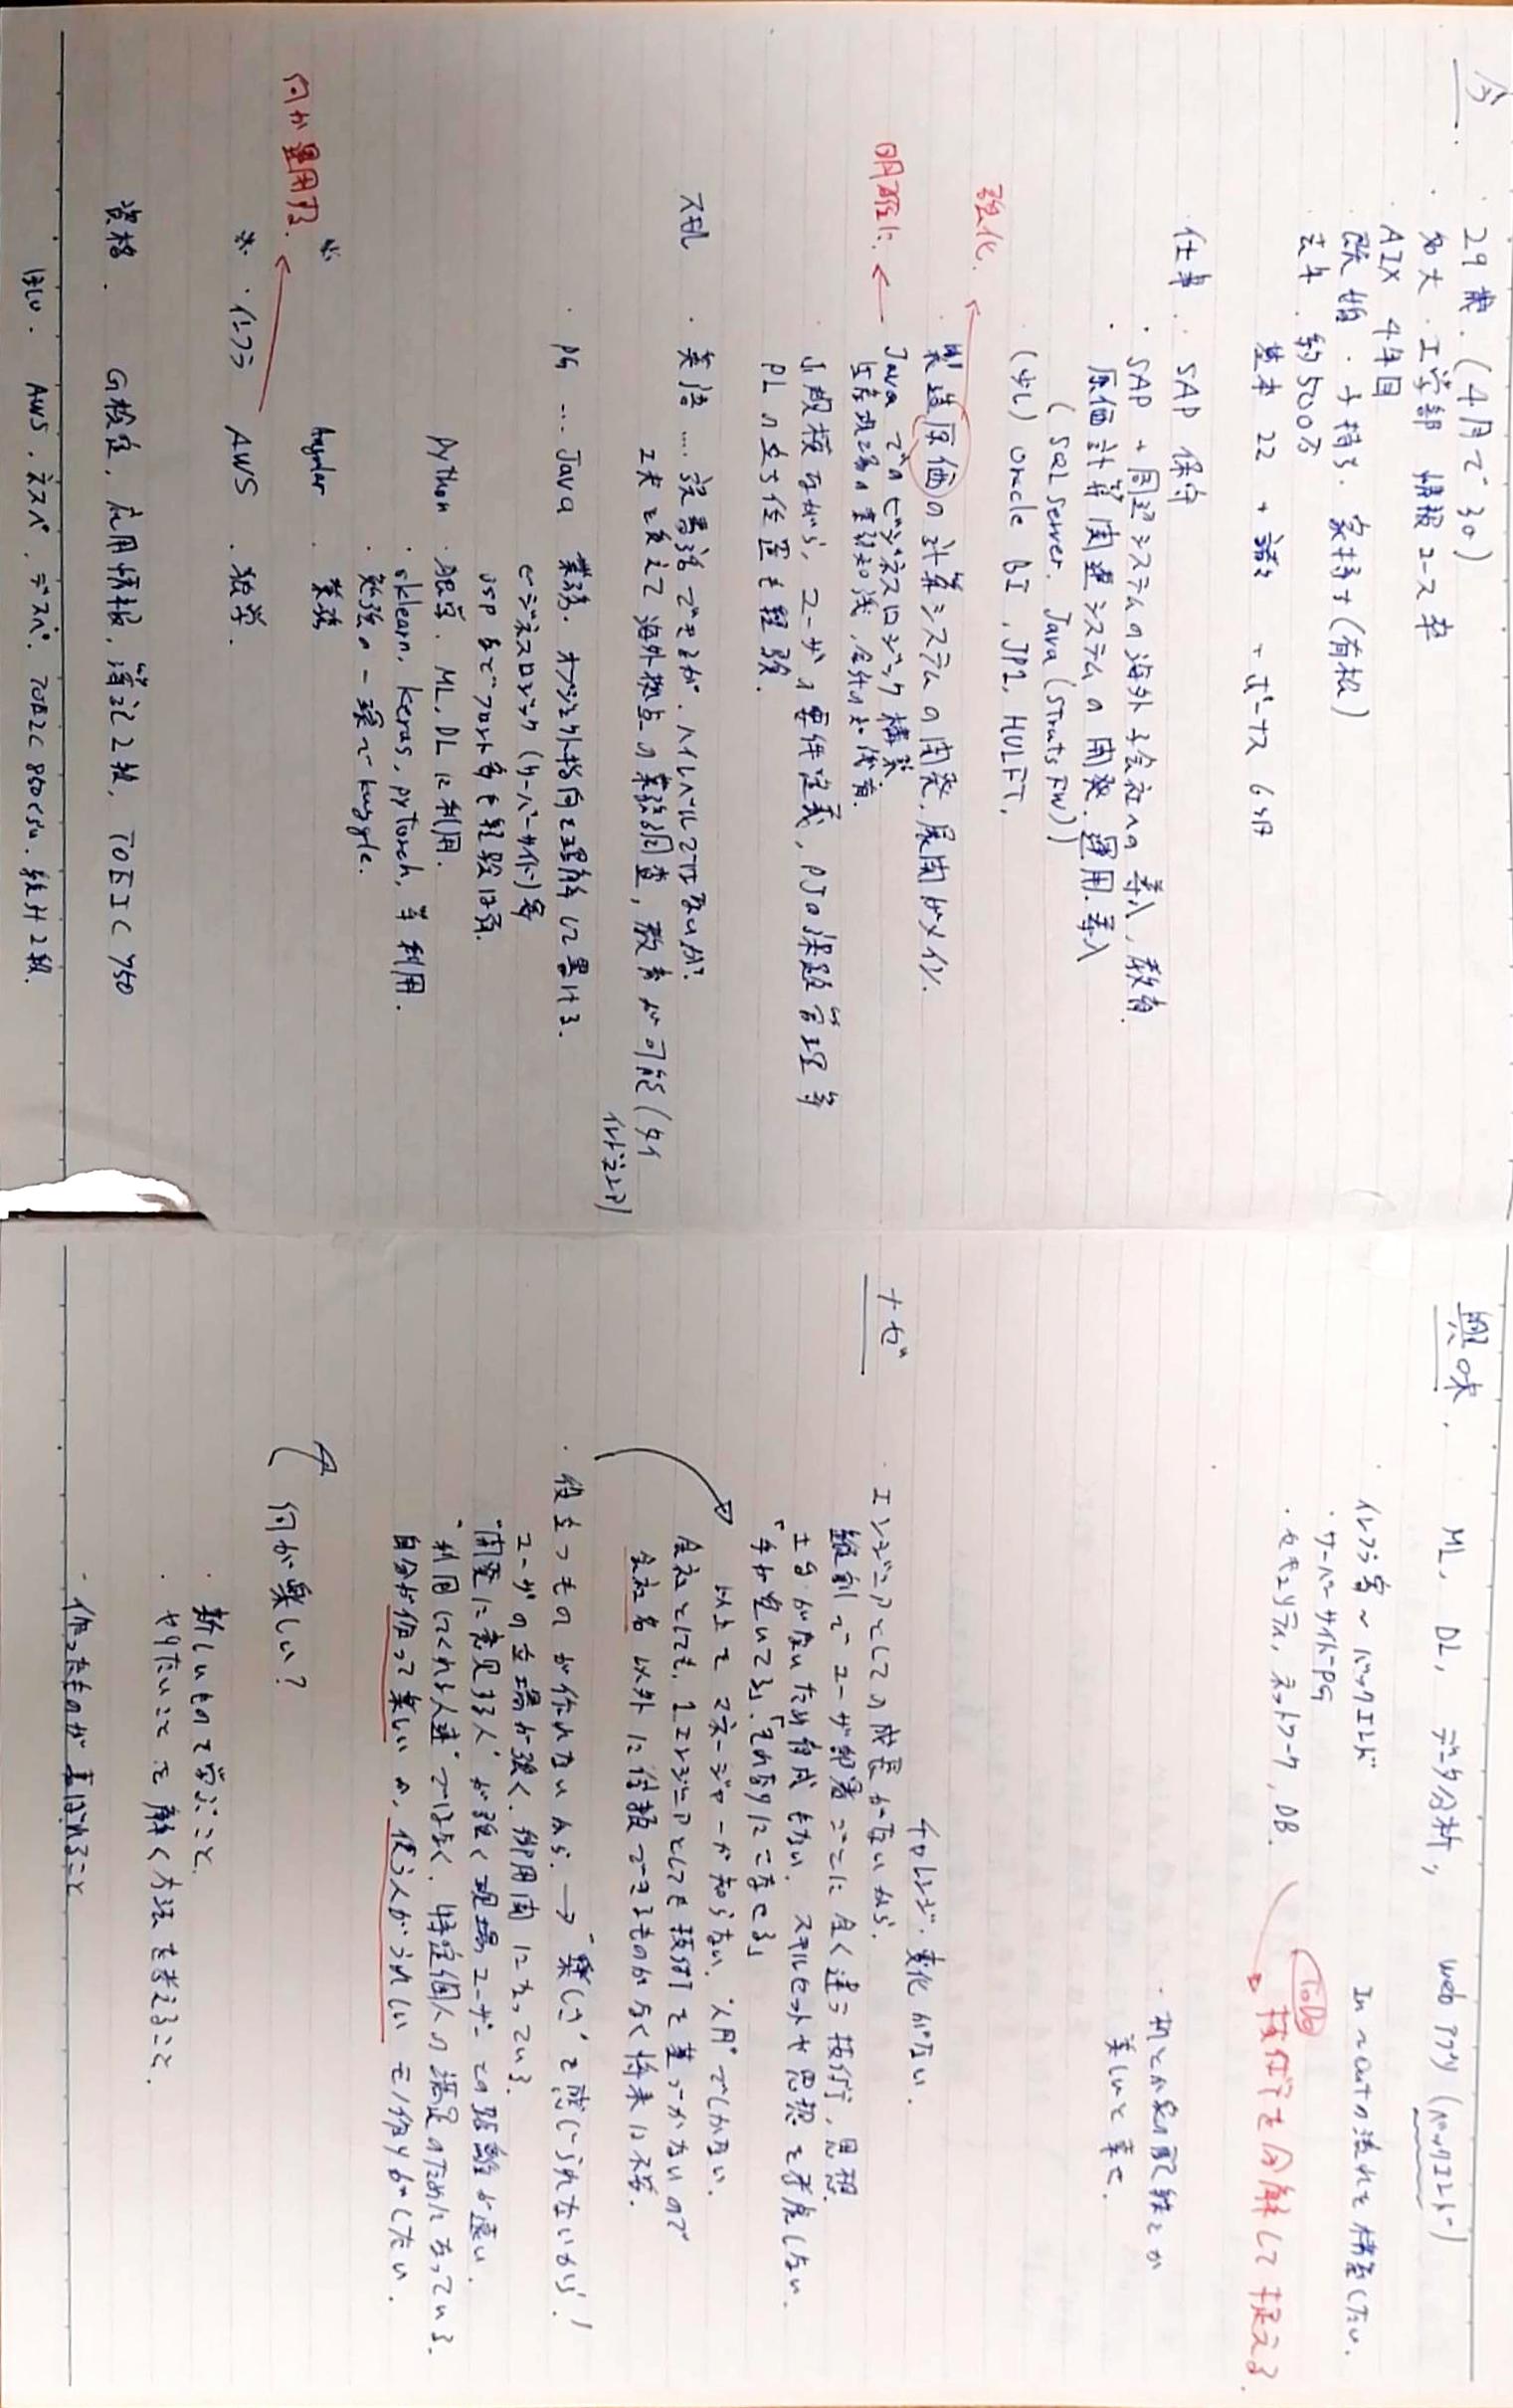 今.
・29歳.(4月で30)
・名大・工学部 情報コース卒
・AIX 4年目
・既婚・子持ち・家持ち(有松)
・去年.約500万
基本 22 + 諸々 + ボーナス 6ヶ月
・仕事. SAP 保守
・SAP + 周辺システムの海外子会社への導入,教育.
・原価計算関連システムの開発.運用.導入
(SQL server. Java (Struts FW))
(少し) Oracle BI, JP1, HULFT,
強化.
製造原価の計算システムの開発,展開がメイン.
明確に.
Java でのビジネスロジック構築.
生産現場の業務知識,会計の知識有.
小規模ながら,ユーザの要件定義, PJの課題管理等
PLの立ち位置も経験.
スキル
・英語 .... 読書話できるが.ハイレベルではないか?
工夫を交えて海外拠点の業務調査,教育が可能(タイ
インドネシア)
・PG ... Java 業務. オブジェクト指向を理解して書ける.
ビジネスロジック(サーバーサイド)多
JSPなどフロント多も経験は有.
Python ・独学. ML, DLに利用.
・sklearn, keras, pytorch, 等利用.
・勉強の一環でkaggle.
※ Angular . 業務
何か運用する.
※ ・インフラ AWS . 独学.
資格. G検定, 応用情報, 簿記2級, TOEIC 750
ほしい. AWS . ネスペ . デスペ. TOEIC 850くらい. 統計2級.
興味. ML, DL, データ分析,, web アプリ(バックエンド)
インフラ寄〜バックエンド
In 〜 Outの流れを構築したい.
・サーバーサイドPG
・セキュリティ, ネットワーク, DB.
ToDo
技術を分解して捉える.
・机とか家の配線とか
美しいと幸せ.
チャレンジ・変化がない.
ナゼ
エンジニアとしての成長がないから.
縦割でユーザ部署ごとに全く違う技術,思想.
土台がないため育成もない. スキルセットや思想を考慮しない.
「手が空いてる」「それなりにこなせる」
以上をマネージャーが知らない. "人月"でしかない.
会社としても, 1エンジニアとしても技術を基づかないので
会社名以外に信頼できるものがなく将来は不安.
・役立つものが作れないから. → "楽しさ"を感じられないから!
ユーザの立場が強く,御用聞になっている.
"開発に意見する人"が強く現場ユーザーとの距離が遠い.
"利用してくれる人達"ではなく,特定個人の満足のためになっている.
自分が作って楽しいか, 使う人がうれしいモノ作りがしたい.
何が楽しい?
・新しいものを学ぶこと.
・やりたいことを解く方法を考えること.
・作ったものが喜ばれること